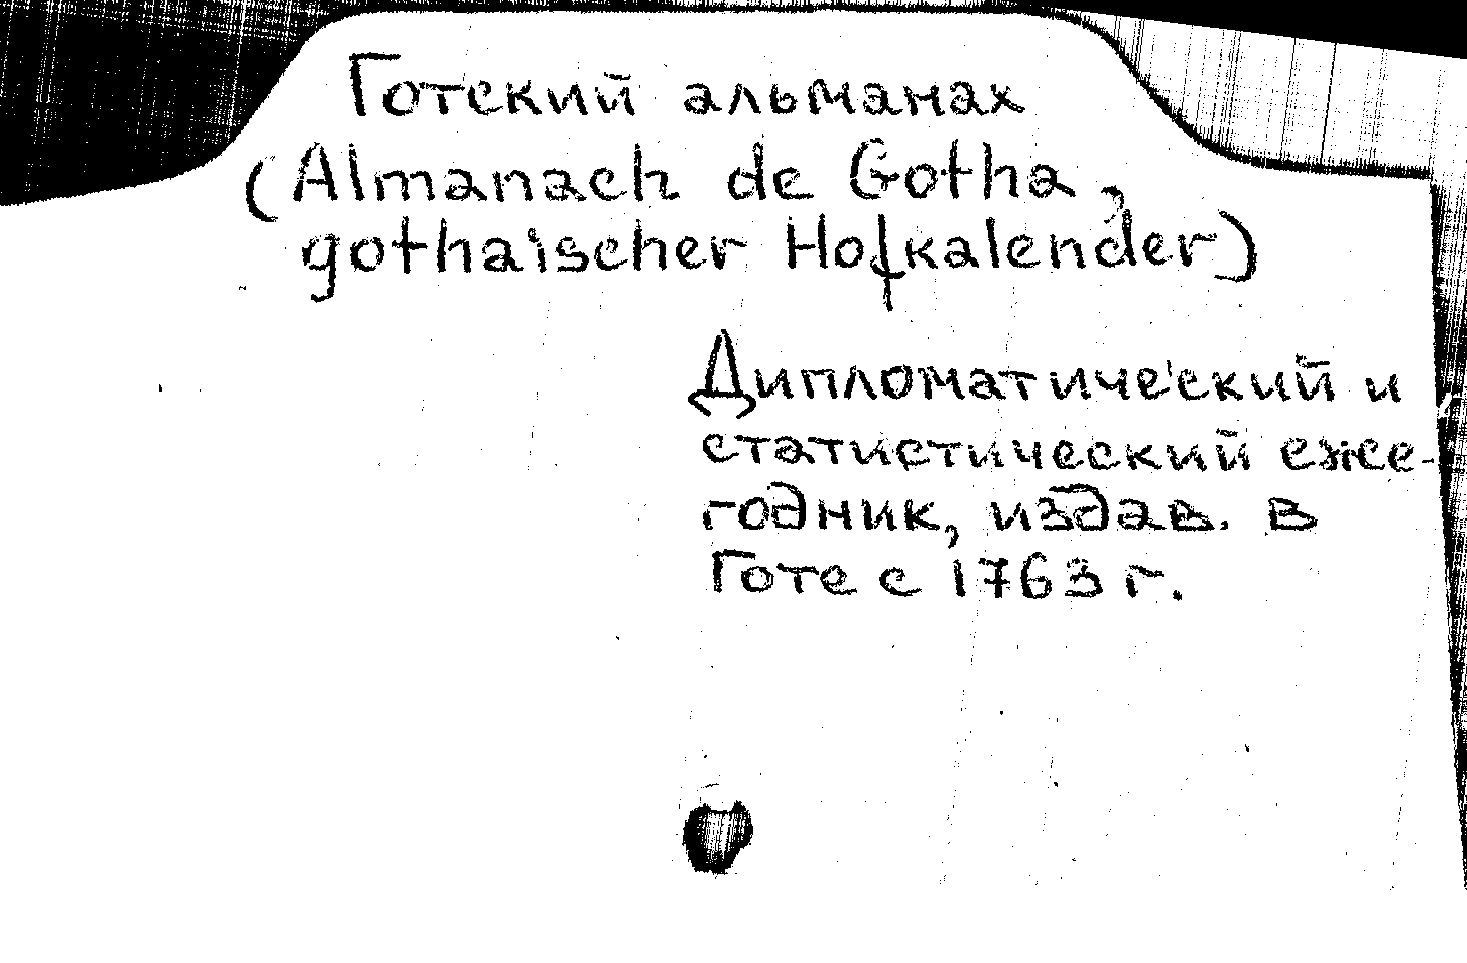 Готский альманах
(Almanach de Gotha,
gothaischer Hofkalender)
Дипломатический и
статистический еже-
годник, издав. в
Готе с 1763 г.